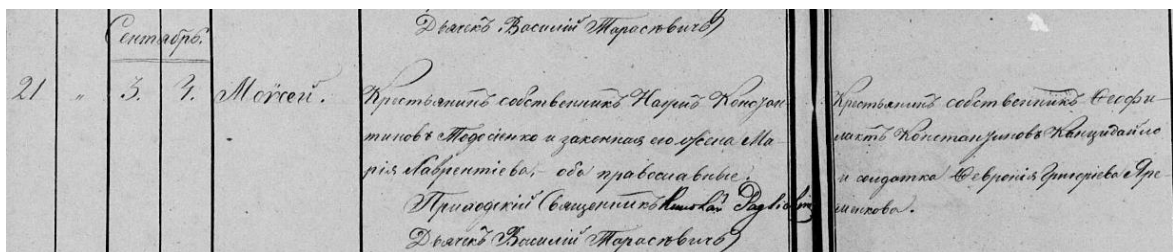 Дьячекъ Василій Тарасевичъ
Сентябрь.
21 " 3. 7. Моѵсей. Крестьянинъ собственникъ Назрій Констан-
тиновъ Тодосіенко и законная его жена Ма-
рія Лаврентіева, оба православные.
Приходскій Священникъ Николай
Дьячекъ Василій Тарасевичъ
Крестьянинъ собственникъ Ѳеофи-
лактъ Константиновъ Канцидайло
и солдатка Ѳевронія Григоріева Яре-
менкова.